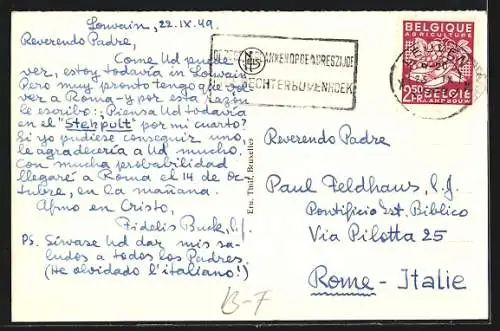 Louvain, 22.IX.49.
Reverendo Padre,
Como Ud puede
ver, estoy todavía in Louvain
Pero muy pronto tengo que vol-
ver a Roma - y por esta razón
le escribo: ¿Piensa Ud todavía
en el "Stehpult" por mi cuarto?
Si yo pudiese conseguir uno,
le agradecería a Ud mucho.
Con mucha probabilidad
llegaré a Roma el 14 de oc-
tubre, en la mañana.
Afmo en Cristo,
Fidelis Buck, s.j.
PS. Sírvase Ud dar mis sa-
ludos a todos los Padres.
(He olvidado l'italiano!)
Ern. Thill, Bruxelles
ADRESZIJDE
RECHTERBOVENHOEK
BELGIQUE
AGRICULTURE
2,50
LANDBOUW
BELGIE
Reverendo Padre
Paul Feldhaus, s.j.
Pontificio Ist. Biblico
Via Pilotta 25
Rome - Italie
B-F